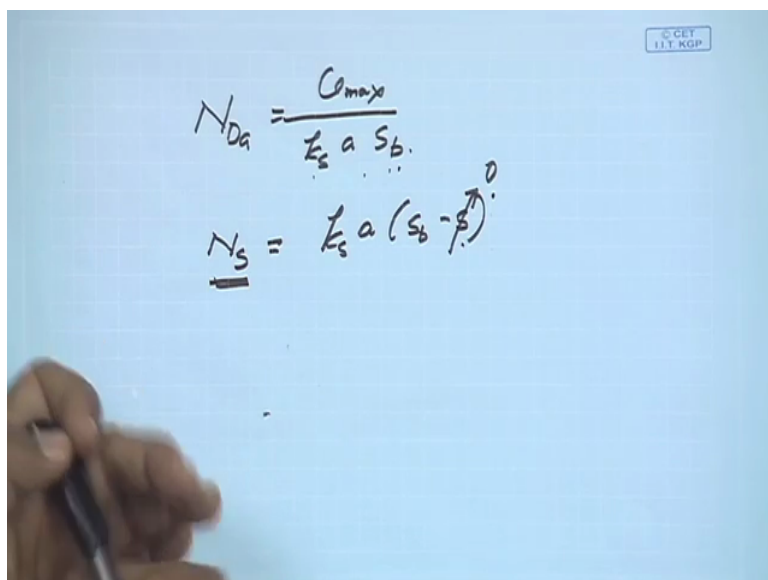 © CET
I.I.T. KGP
N_Da = v_max / k_s a S_b.
N_S = k_s a (S_b - S) 0